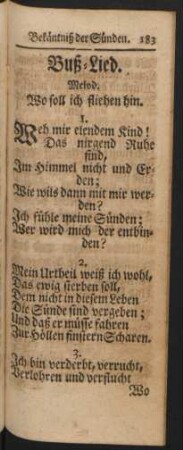 Bekäntniß der Sünden. 183
Buß-Lied.
Melod.
Wo soll ich fliehen hin.
1.
Weh mir elendem Kind!
Das nirgend Ruhe
find,
Im Himmel nicht und Er-
den;
Wie wils dann mit mir wer-
den?
Ich fühle meine Sünden;
Wer wird mich der entbin-
den?
2.
Mein Urtheil weiß ich wohl,
Das ewig sterben soll,
Dem nicht in diesem Leben
Die Sünde sind vergeben;
Und daß er müsse fahren
Zur Höllen finstern Scharen.
3.
Ich bin verderbt, verrucht,
Verlohren und verflucht
Wo